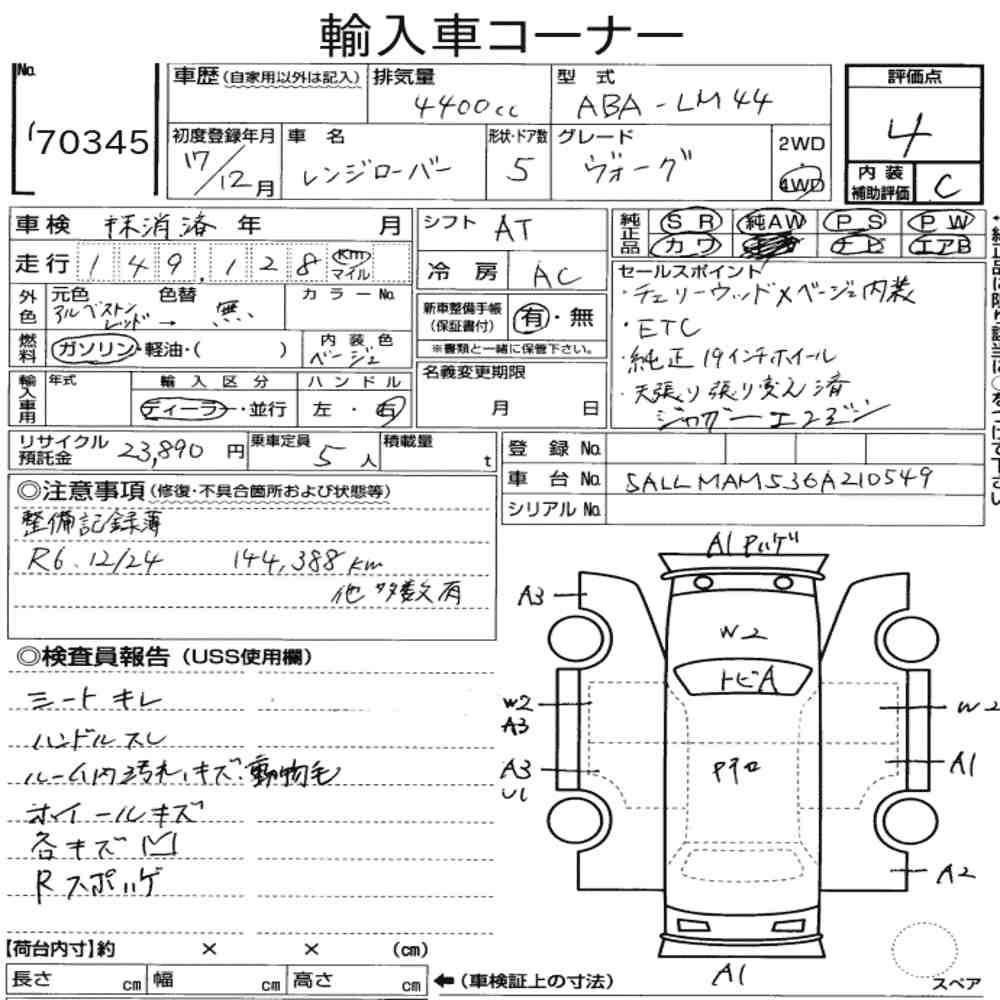 輸入車コーナー
No. 70345
車歴 (自家用以外は記入) 排気量 4400cc 型式 ABA-LM44
評価点 4
初度登録年月 17/12月 車名 レンジローバー 形状・ドア数 5 グレード ヴォーグ 2WD 4WD
内装補助評価 C
車検 抹消済 年 月
走行 149,128 Km マイル
外色 元色 アルベストンレッド → 色替 無 カラーNo.
燃料 ガソリン・軽油・( ) 内装色 ベージュ
輸入車用 年式 輸入区分 ディーラー・並行 ハンドル 左・右
シフト AT
冷房 AC
新車整備手帳(保証書付) 有・無
※書類と一緒に保管下さい。
名義変更期限 月 日
純正品 SR 純AW PS PW
カワ ナビ エアB
セールスポイント
・チェリーウッド×ベージュ内装
・ETC
・純正19インチホイール
・天張り張り変え済
ジャガーエンジン
リサイクル預託金 23,890円 乗車定員 5人 積載量 t
登録No.
車台No. SALLMAM536A210549
シリアルNo.
◎注意事項 (修復・不具合箇所および状態等)
整備記録簿
R6.12/24 144,388km
他多数有
◎検査員報告 (USS使用欄)
シートキレ
ハンドルスレ
ルーム内汚れ、キズ、動物毛
ホイールキズ
各キズ凹
Rスポハゲ
A1 Pハゲ
A3
W2
トビA
W2
A3
W2
A3
U1
A1
A2
A1
【荷台内寸】約 × × (cm)
長さ cm 幅 cm 高さ cm ←(車検証上の寸法)
スペア